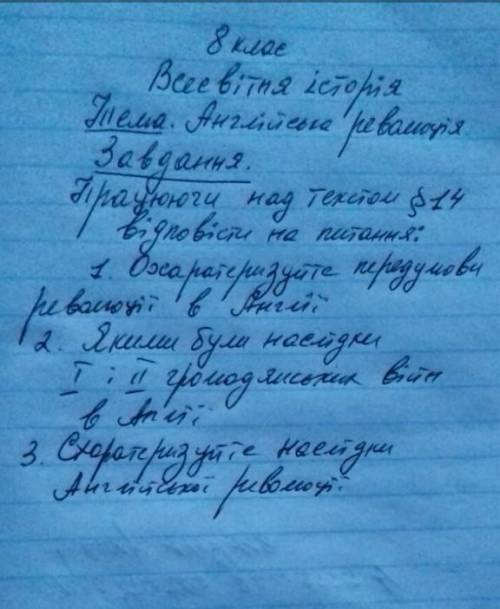 8 клас
Всесвітня історія
Тема. Англійська революція
Завдання.
Працюючи над текстом § 14
відповісти на питання:
1. Охаратеризуйте передумови
революції в Англії
2. Якими були наслідки
I і II громадянських війн
в Англії
3. Схаратеризуйте наслідки
Англійської революції.